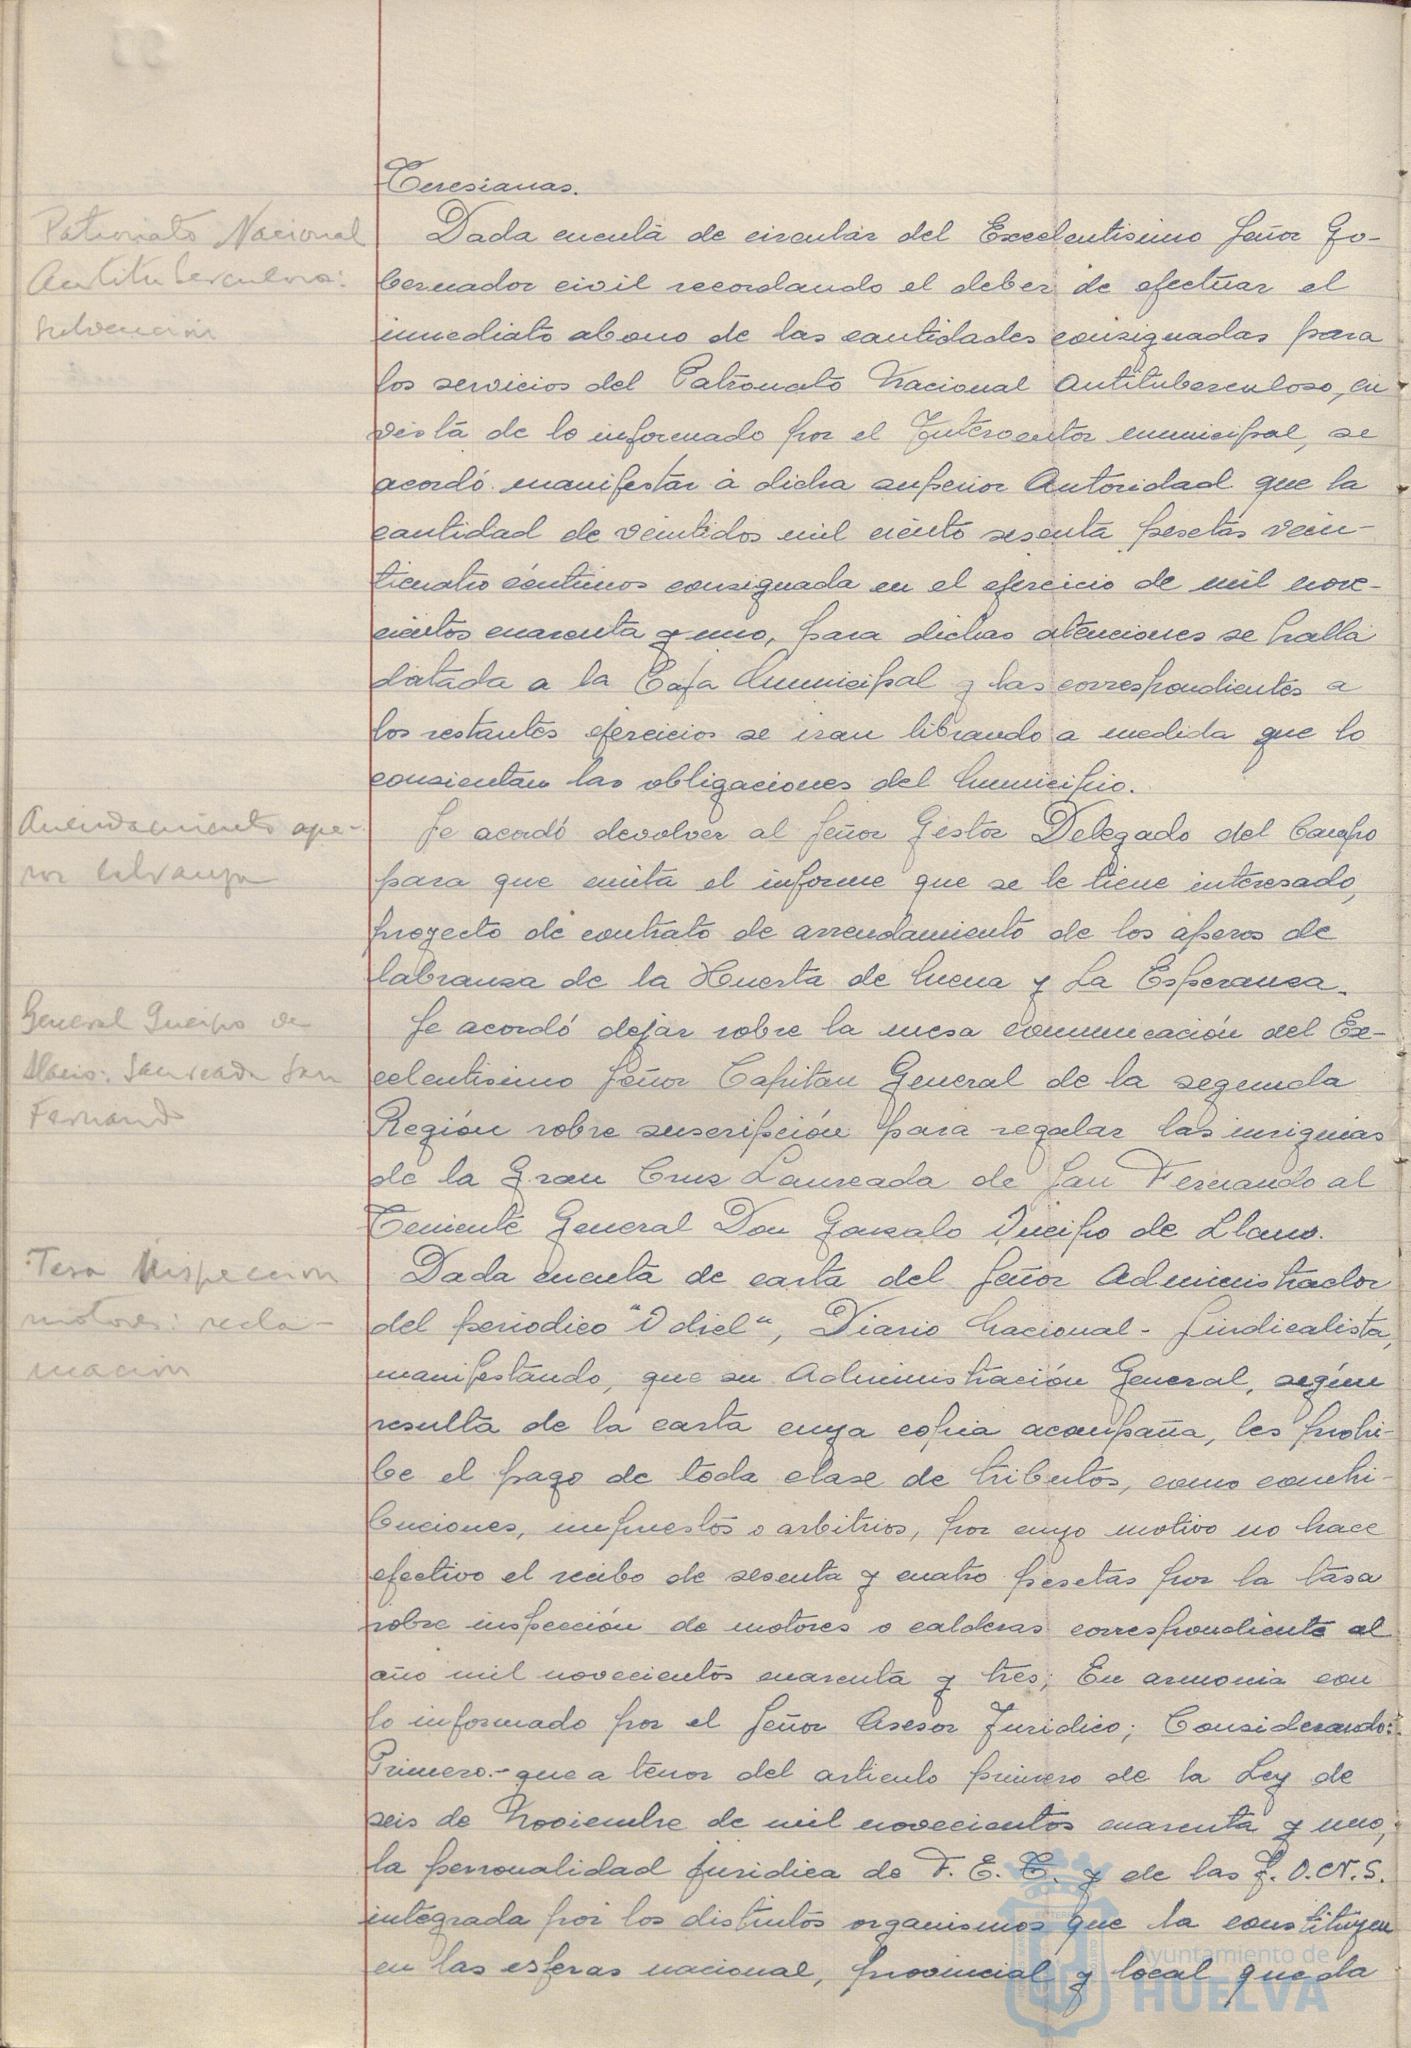 Teresianas.
Patronato Nacional
Antituberculoso:
subvención
Dada cuenta de circular del Excelentisimo Señor Go-
bernador civil recordando el deber de efectuar el
inmediato abono de las cantidades consignadas para
los servicios del Patronato Nacional Antituberculoso, en
vista de lo informado por el Interventor municipal, se
acordó manifestar a dicha superior Autoridad que la
cantidad de veintidos mil ciento sesenta pesetas vein-
ticuatro céntimos consignada en el ejercicio de mil nove-
cientos cuarenta y uno, para dichas atenciones se halla
datada a la Caja Municipal y las correspondientes a
los restantes ejercicios se iran librando a medida que lo
consientan las obligaciones del Municipio.
Arrendamiento ape-
ros labranza
Se acordó devolver al Señor Gestor Delegado del Campo
para que emita el informe que se le tiene interesado,
proyecto de contrato de arrendamiento de los aperos de
labranza de la Huerta de Mena y La Esperanza.
General Queipo de
Llano: Laureada San
Fernando
Se acordó dejar sobre la mesa comunicación del Ex-
celentisimo Señor Capitan General de la segunda
Región sobre suscripción para regalar las insignias
de la Gran Cruz Laureada de San Fernando al
Teniente General Don Gonzalo Queipo de Llano.
Tasa Inspeccion
motores: recla-
macion
Dada cuenta de carta del Señor Administrador
del periodico "Odiel", Diario Nacional-Sindicalista,
manifestando, que su Administración General, según
resulta de la carta cuya copia acompaña, les prohi-
be el pago de toda clase de tributos, como contri-
buciones, impuestos o arbitrios, por cuyo motivo no hace
efectivo el recibo de sesenta y cuatro pesetas por la tasa
sobre inspección de motores o calderas correspondiente al
año mil novecientos cuarenta y tres; En armonia con
lo informado por el Señor Asesor Juridico; Considerando:
Primero.- que a tenor del articulo primero de la Ley de
seis de Noviembre de mil novecientos cuarenta y uno,
la personalidad juridica de F. E. T. y de las J. O. N. S.
integrada por los distintos organismos que la constituyen
en las esferas nacional, provincial y local queda
Ayuntamiento de
HUELVA